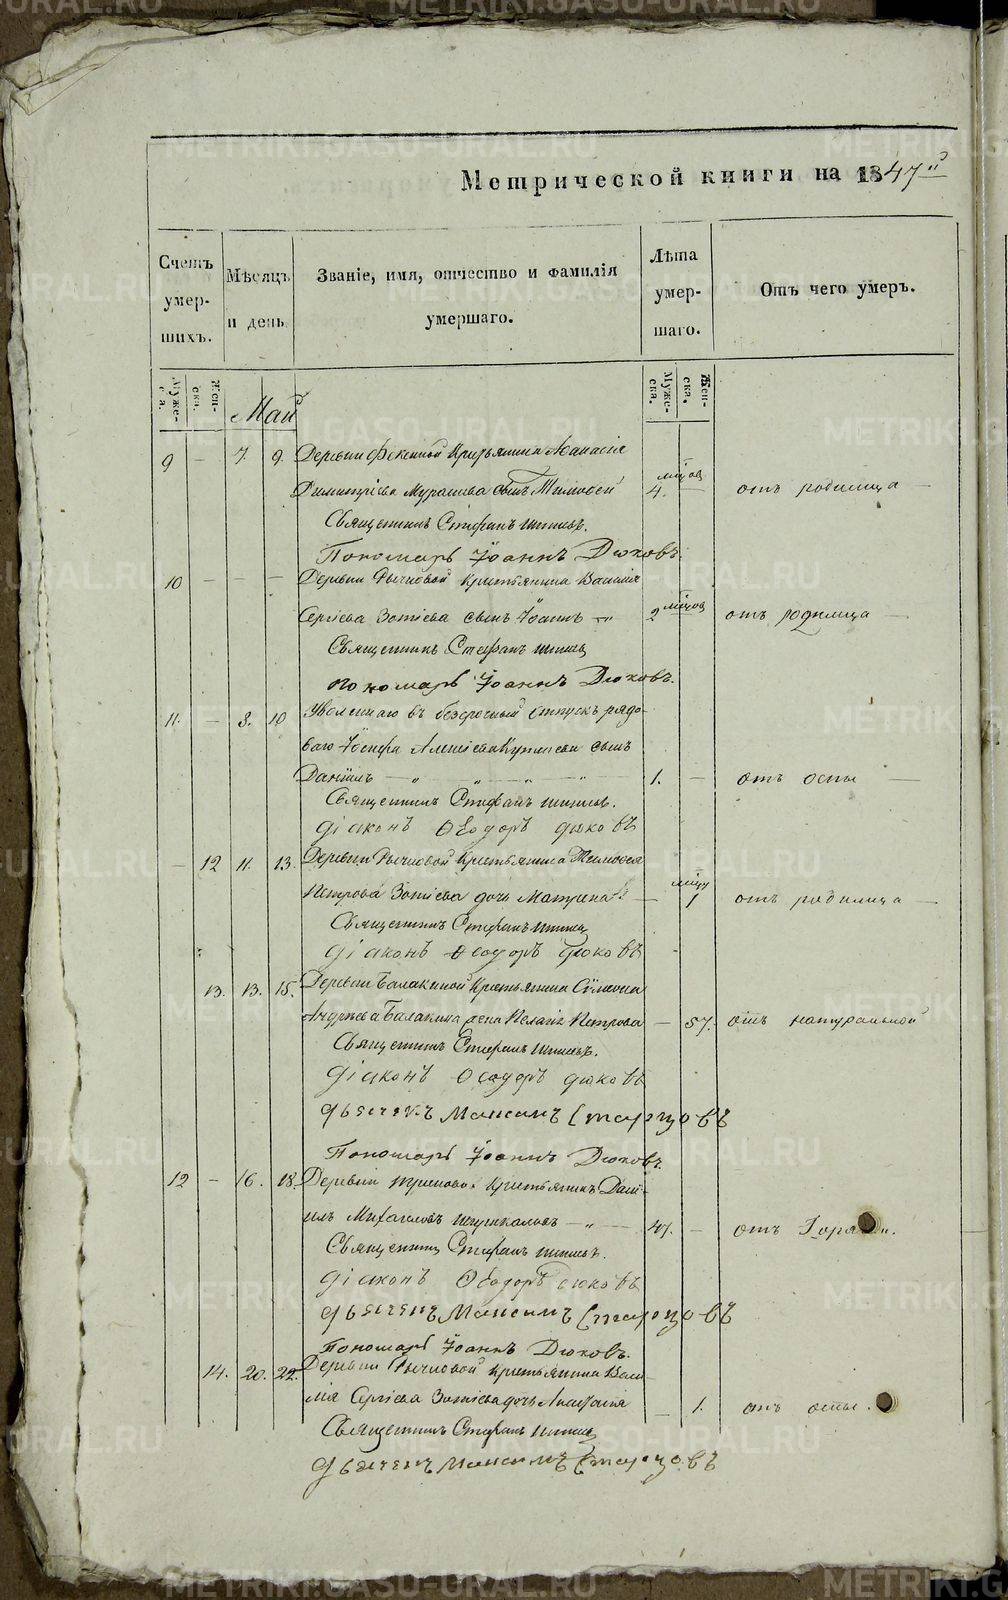 Метрической книги на 1847й
Счетъ умер- шихъ.
Мѣсяцъ и день.
Званіе, имя, отчество и фамилія умершаго.
Лѣта умер- шаго.
Отъ чего умеръ.
Муже- ска. Жен- ска.
Муже- ска. Жен- ска.
Май
9 — 7. 9. Деревни Крестьянина Аѳанасія
Димитріева Мурашева сынъ Тимоѳей 4. мѣсяц — отъ родимца —
Священникъ Стефанъ
Пономарь Іоаннъ Дюковъ.
10 — — — Деревни Рычковой Крестьянина Василія
Сергіева Зотіева сынъ Іоаннъ 2 мѣсяц отъ родимца —
Священникъ Стефанъ
пономарь Іоаннъ Дюковъ.
11. — 8. 10 Уволеннаго въ безсрочный отпускъ рядо-
ваго Іосифа Алексіева сынъ
Даніилъ — „ — „ — „ 1. — отъ оспы —
Священникъ Стефанъ
Діаконъ Ѳеодоръ Дюковъ
— 12 11. 13. Деревни Рычковой Крестьянина Тимоѳея
Петрова Зотіева дочь Матрена — мѣсяц 1 отъ родимца —
Священникъ Стефанъ
Діаконъ Ѳеодоръ Дюковъ
13. 13. 15. Деревни Балакиной Крестьянина Сімеона
Андреева Балакина жена Пелагія Петрова — 57. отъ натуральной
Священникъ Стефанъ
Діаконъ Ѳеодоръ Дюковъ
Дьячекъ Максимъ Старцовъ
Пономарь Іоаннъ Дюковъ.
12 — 16. 18. Деревни Крестьянинъ Дані-
илъ Михаиловъ — „ — 47. — отъ
Священникъ Стефанъ
Діаконъ Ѳеодоръ Дюковъ
Дьячекъ Максимъ Старцовъ
Пономарь Іоаннъ Дюковъ.
14. 20. 22. Деревни Рычковой Крестьянина Васи-
лія Сергіева Зотіева дочь Анастасія — 1. отъ оспы.
Священникъ Стефанъ
Дьячекъ Максимъ Старцовъ
METRIKI.GASO-URAL.RU